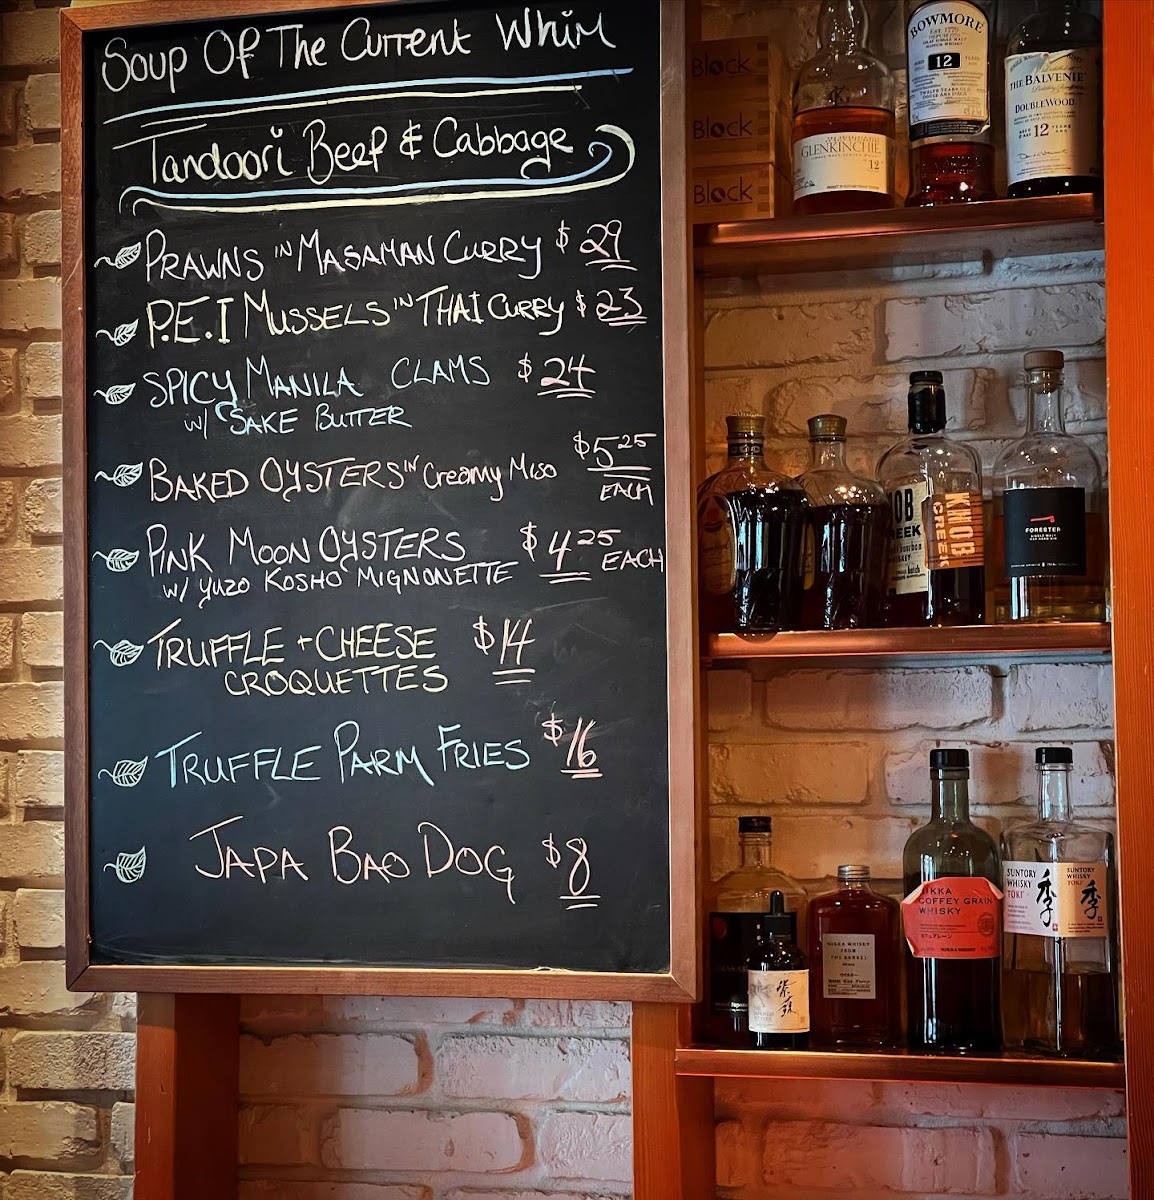 Soup Of The Current Whim
Tandoori Beef & Cabbage
PRAWNS IN MASAMAN CURRY $29
P.E.I MUSSELS IN THAI CURRY $23
SPICY MANILA CLAMS $24
w/ SAKE BUTTER
BAKED OYSTERS IN Creamy Miso $5.25
EACH
PINK MOON OYSTERS $4.25 EACH
w/ YUZO KOSHO MIGNONETTE
TRUFFLE + CHEESE $14
CROQUETTES
TRUFFLE PARM FRIES $16
JAPA BAO DOG $8
Block
Block
Block
GLENKINCHIE
12
BOWMORE
12
THE BALVENIE
DOUBLEWOOD
AGED 12 YEARS
KNOB
CREEK
FORESTER
NIKKA WHISKY
FROM
THE BARREL
NIKKA
COFFEY GRAIN
WHISKY
SUNTORY
WHISKY
TOKI
季
SUNTORY
WHISKY
TOKI
季